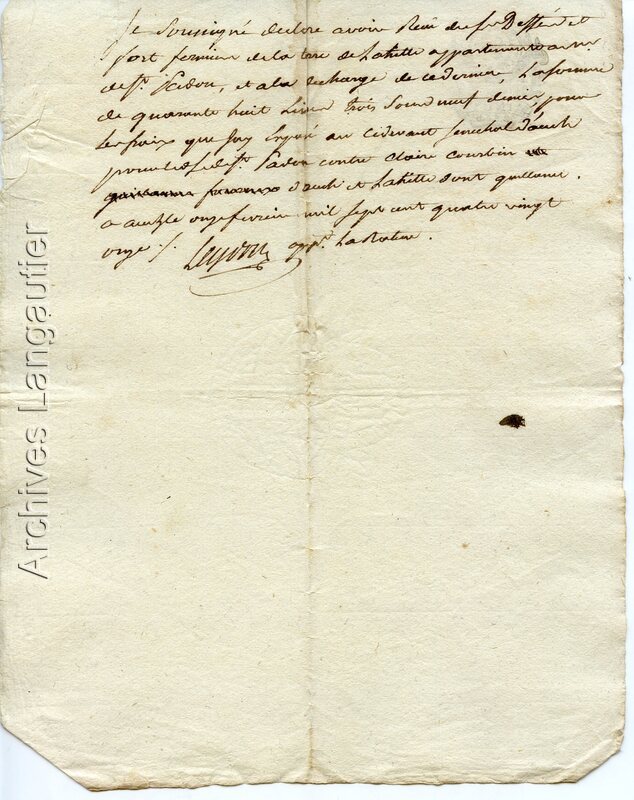 Je soussigné declare avoir Reçu du sr Deffés et
fort fermier de la terre de Lahitte appartenant a mr
de st Padou, et a la decharge de ce dernier, La somme
de quarante huit Livres trois sous neuf deniers pour
les frais que jay Exposé au cidevant senechal d'auch
pour de st Padou contre claire courbin
d'auch et Lahitte dont quittance.
a auch le onze fevrier mil sept cent quatre vingt
onze ./.
Archives Langautier